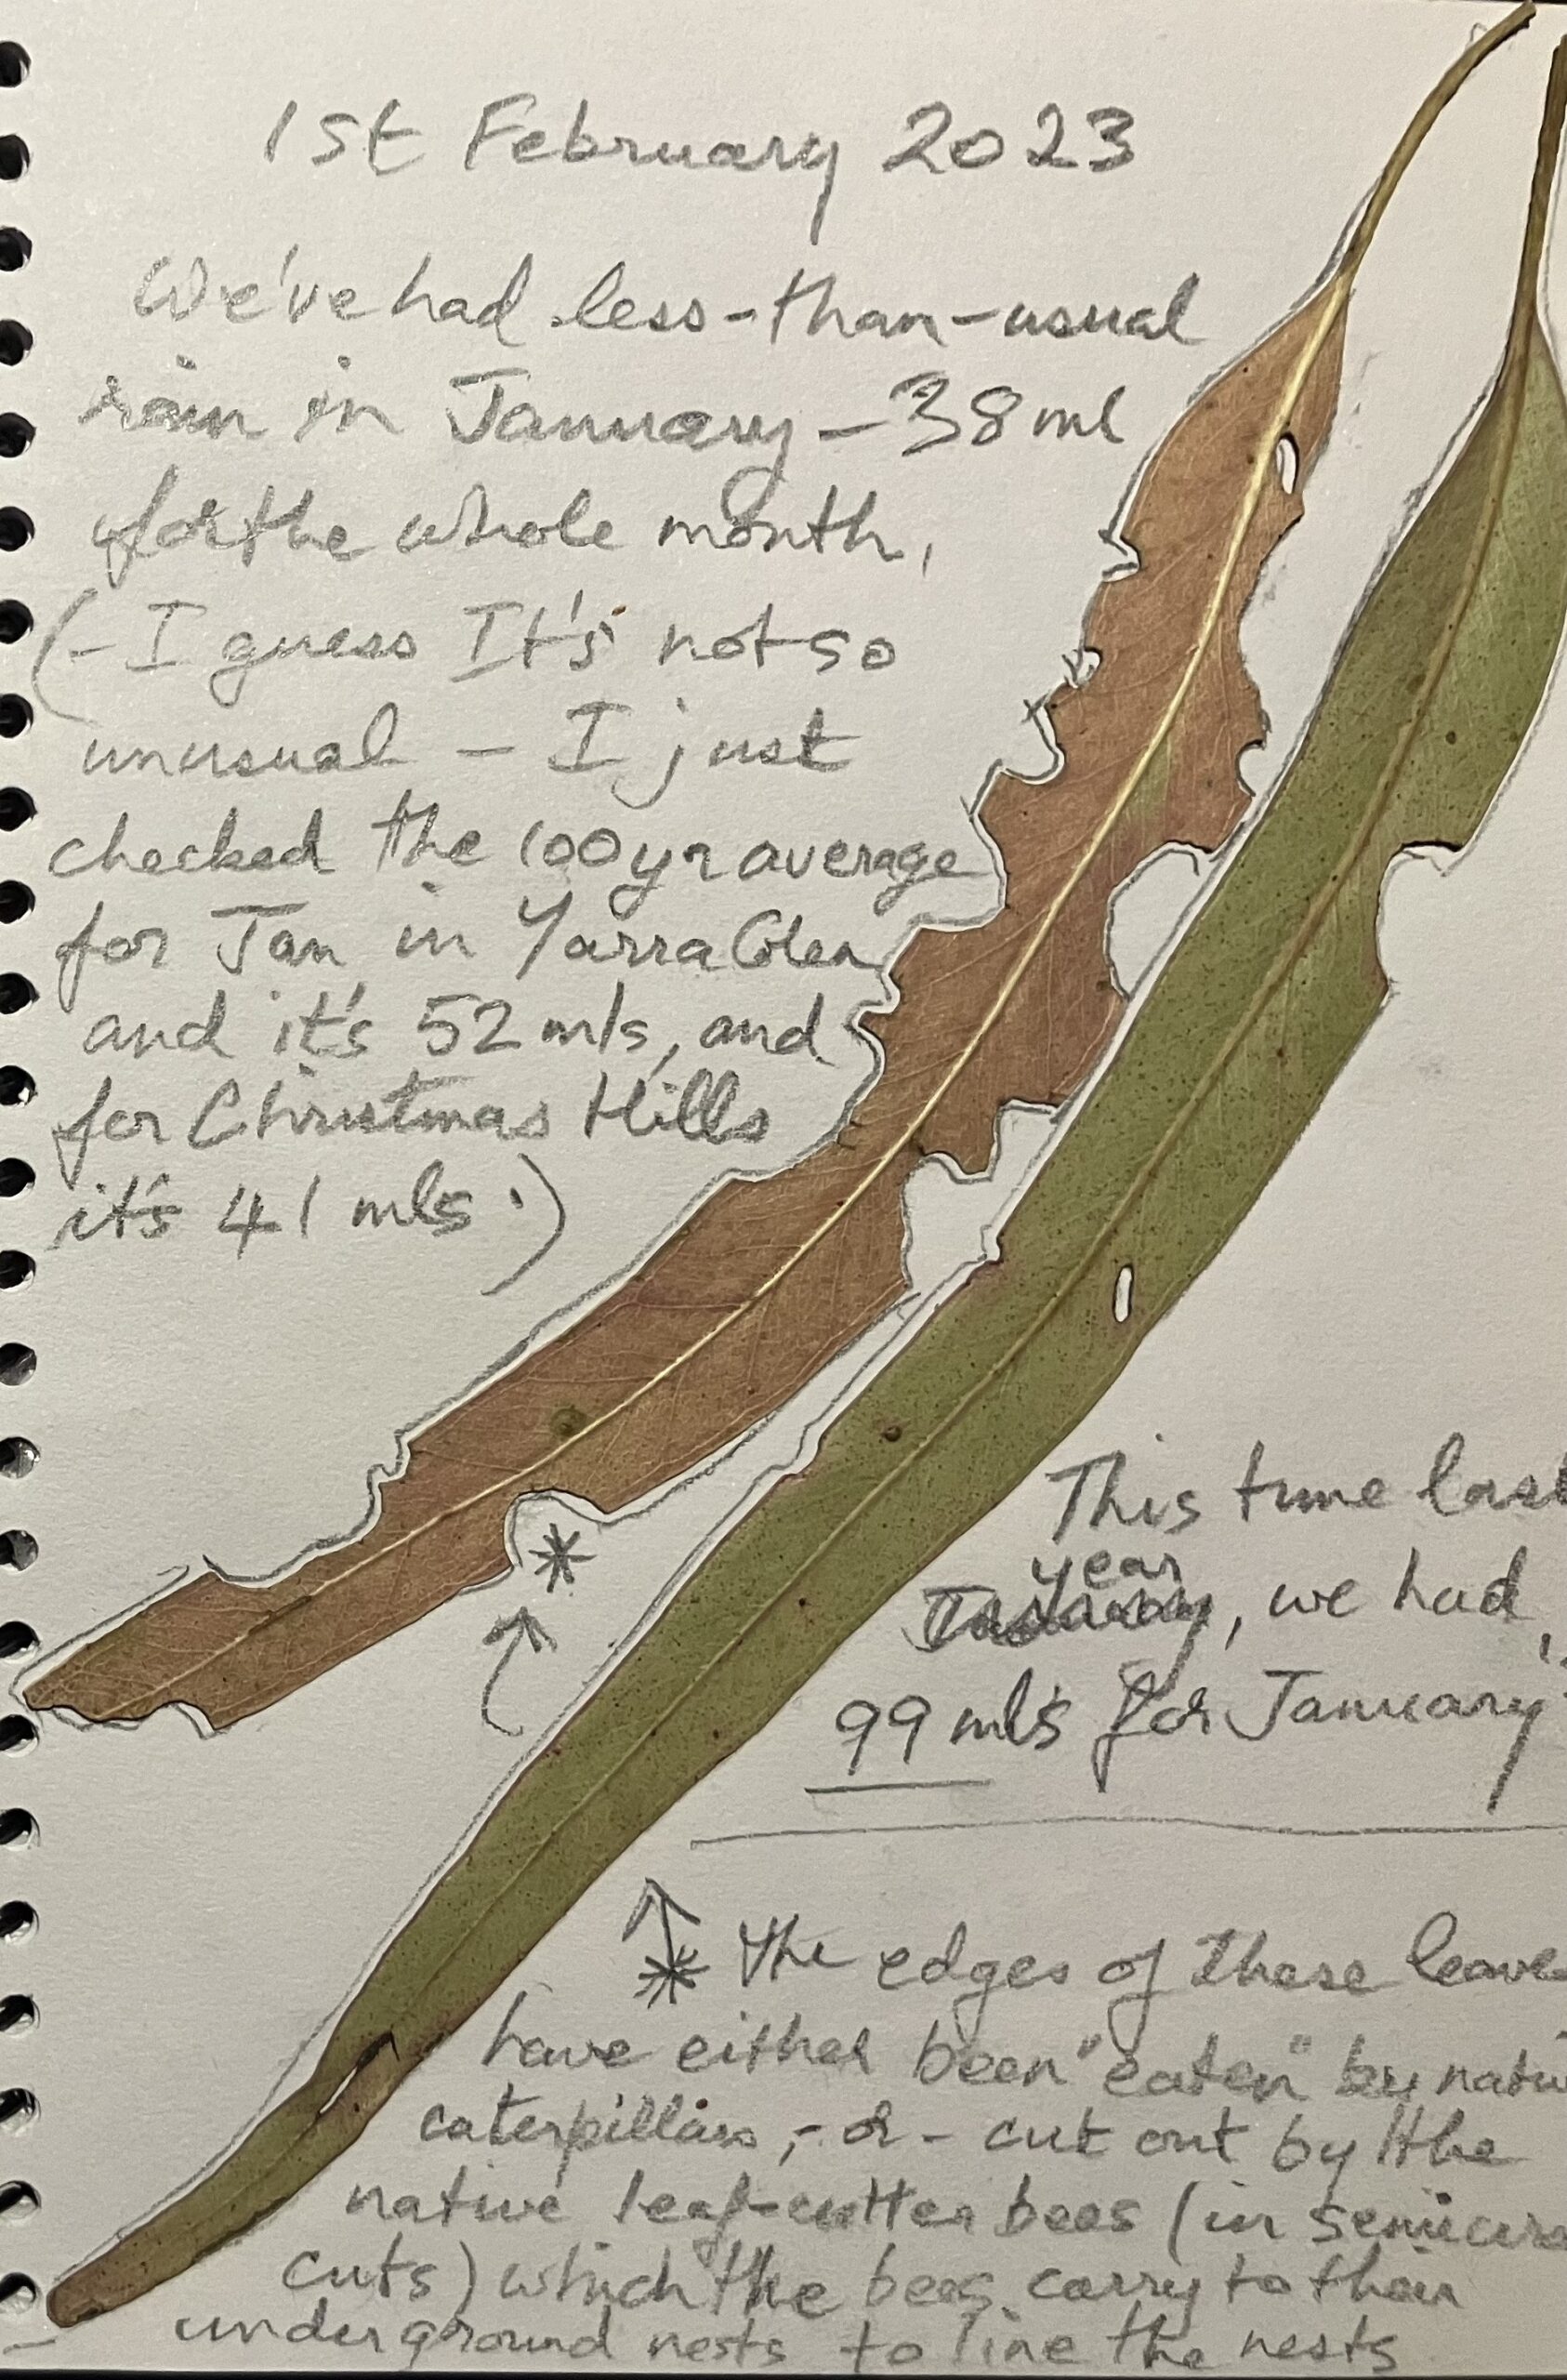 1st February 2023
We've had less-than-usual
rain in January - 38 ml
for the whole month,
(- I guess It's not so
unusual - I just
checked the 100yr average
for Jan in Yarra Glen
and it's 52 mls, and
for Christmas Hills
it's 41 mls.)
This time last
year, we had
99 mls for January
* The edges of these leave
have either been "eaten" by nativ
caterpillars, - or - cut out by the
native leaf-cutter bees (in semicirc
cuts) which the bees carry to their
underground nests to line the nests